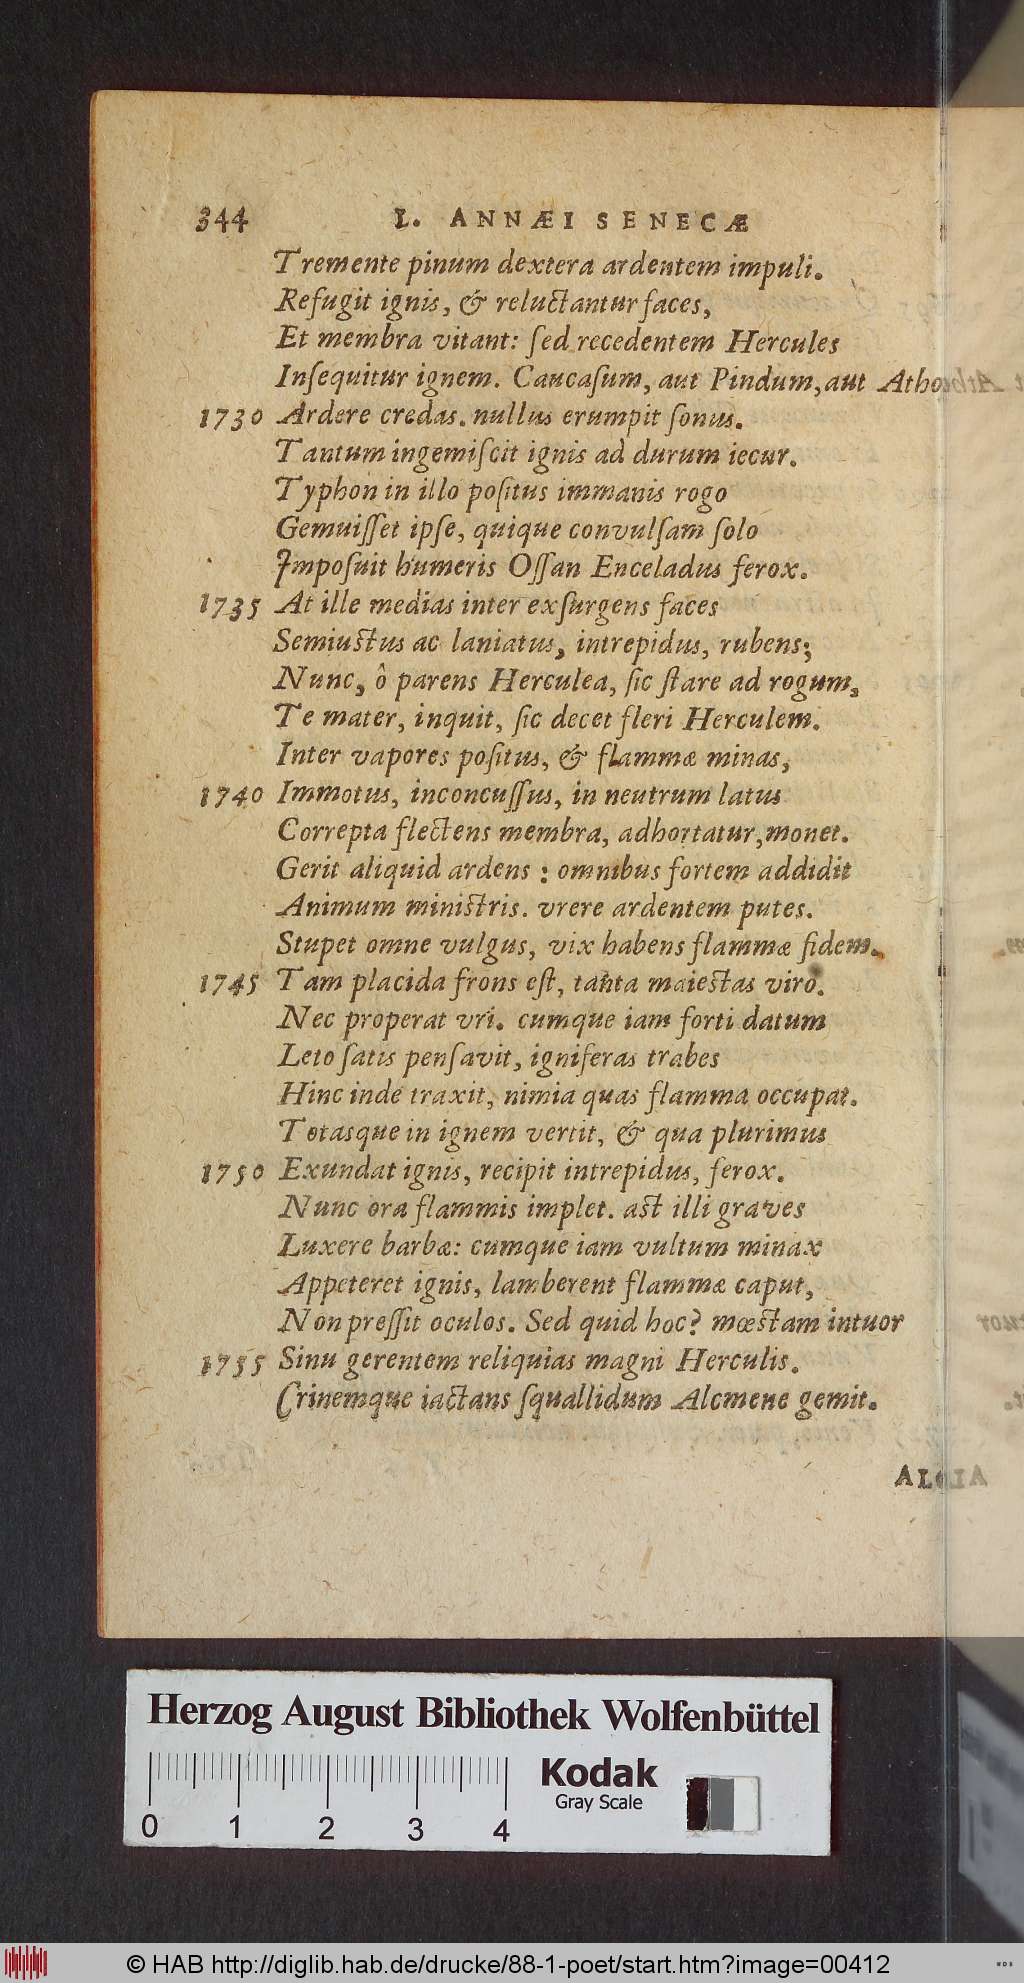 344 L. ANNÆI SENECÆ
Tremente pinum dextera ardentem impuli.
Refugit ignis, & reluctantur faces,
Et membra vitant: ſed recedentem Hercules
Inſequitur ignem. Caucaſum, aut Pindum, aut Atho
1730 Ardere credas. nullus erumpit ſonus.
Tantum ingemiſcit ignis ad durum iecur.
Typhon in illo poſitus immanis rogo
Gemuiſſet ipſe, quique convulſam ſolo
Impoſuit humeris Oſſan Enceladus ferox.
1735 At ille medias inter exſurgens faces
Semiustus ac laniatus, intrepidus, rubens;
Nunc, ô parens Herculea, ſic ſtare ad rogum,
Te mater, inquit, ſic decet fleri Herculem.
Inter vapores poſitus, & flammæ minas,
1740 Immotus, inconcuſſus, in neutrum latus
Correpta flectens membra, adhortatur, monet.
Gerit aliquid ardens : omnibus fortem addidit
Animum ministris. vrere ardentem putes.
Stupet omne vulgus, vix habens flammæ fidem.
1745 Tam placida frons eſt, tanta maiestas viro.
Nec properat vri. cumque iam forti datum
Leto ſatis penſavit, igniferas trabes
Hinc inde traxit, nimia quas flamma occupat.
Totasque in ignem vertit, & qua plurimus
1750 Exundat ignis, recipit intrepidus, ferox.
Nunc ora flammis implet. ast illi graves
Luxere barbæ: cumque iam vultum minax
Appeteret ignis, lamberent flammæ caput,
Non preſſit oculos. Sed quid hoc? mœstam intuor
1755 Sinu gerentem reliquias magni Herculis.
Crinemque iactans ſquallidum Alcmene gemit.
Herzog August Bibliothek Wolfenbüttel
Kodak
Gray Scale
0 1 2 3 4
© HAB http://diglib.hab.de/drucke/88-1-poet/start.htm?image=00412